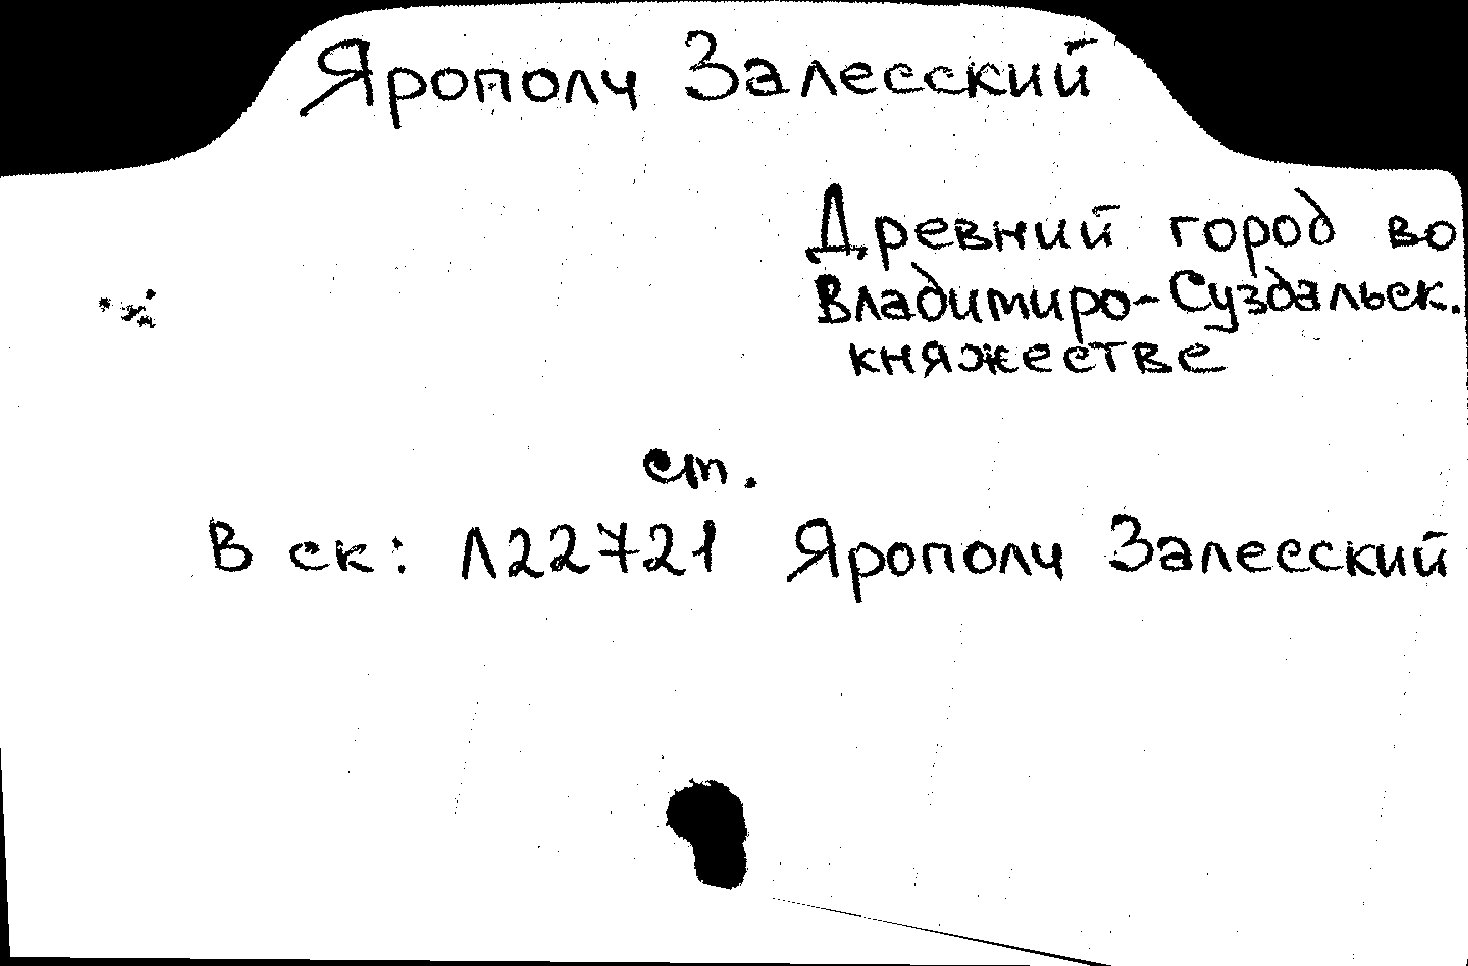 Ярополч Залесский
Древний город во
Владимиро-Суздальск.
княжестве
ст.
В ск: Л22721 Ярополч Залесский